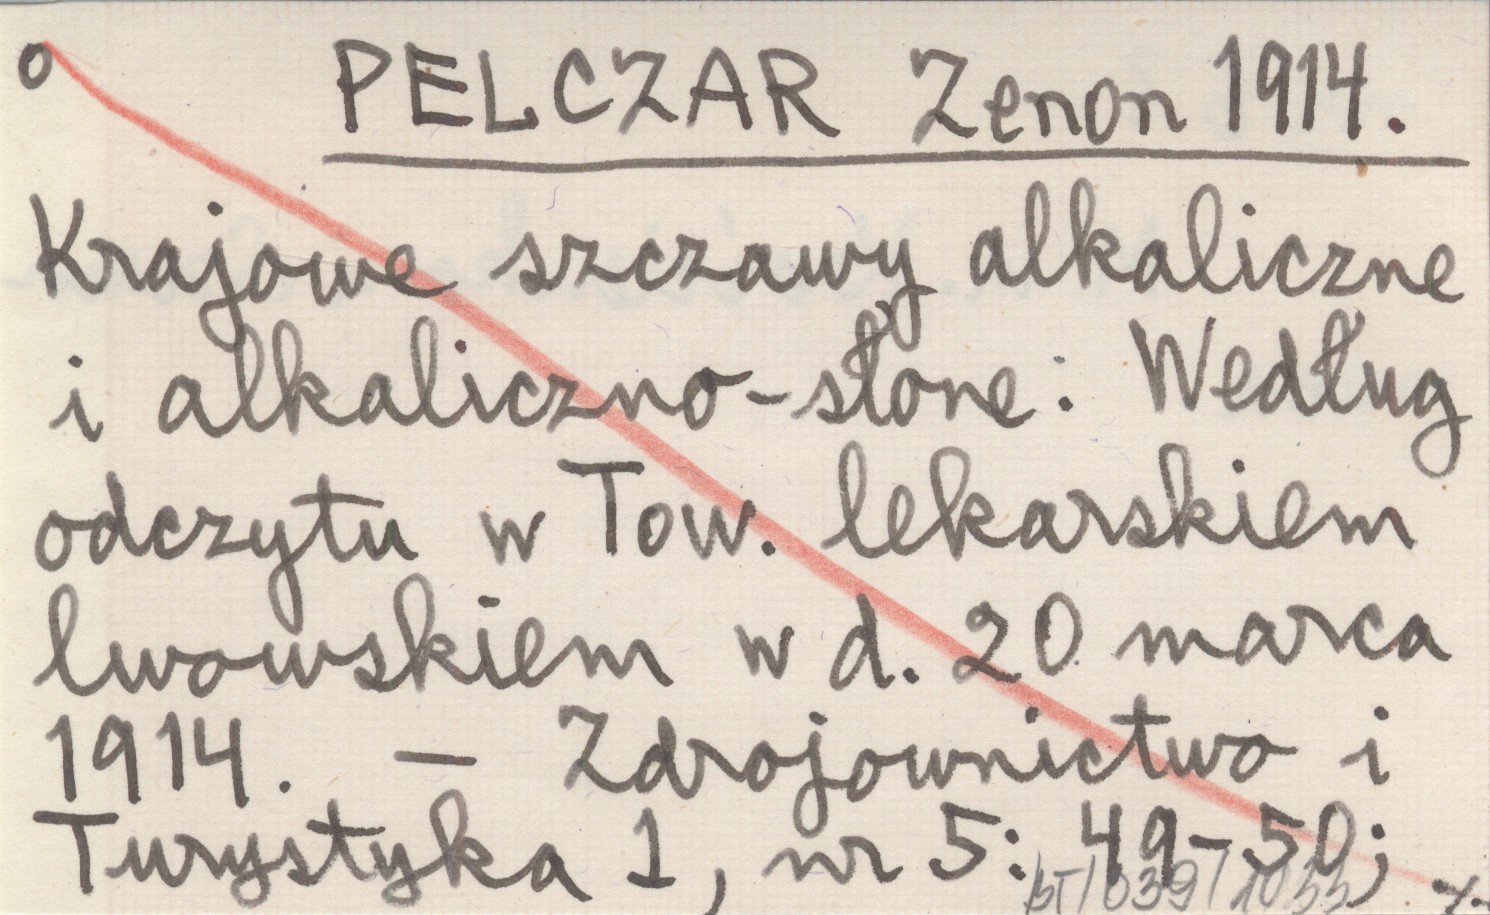 o PELCZAR Zenon 1914.
Krajowe szczawy alkaliczne
i alkaliczno-słone: Według
odczytu w Tow. lekarskiem
lwowskiem w d. 20 marca
1914. — Zdrojownictwo i
Turystyka 1, nr 5: 49-50;
BT/639/1033 ·/.